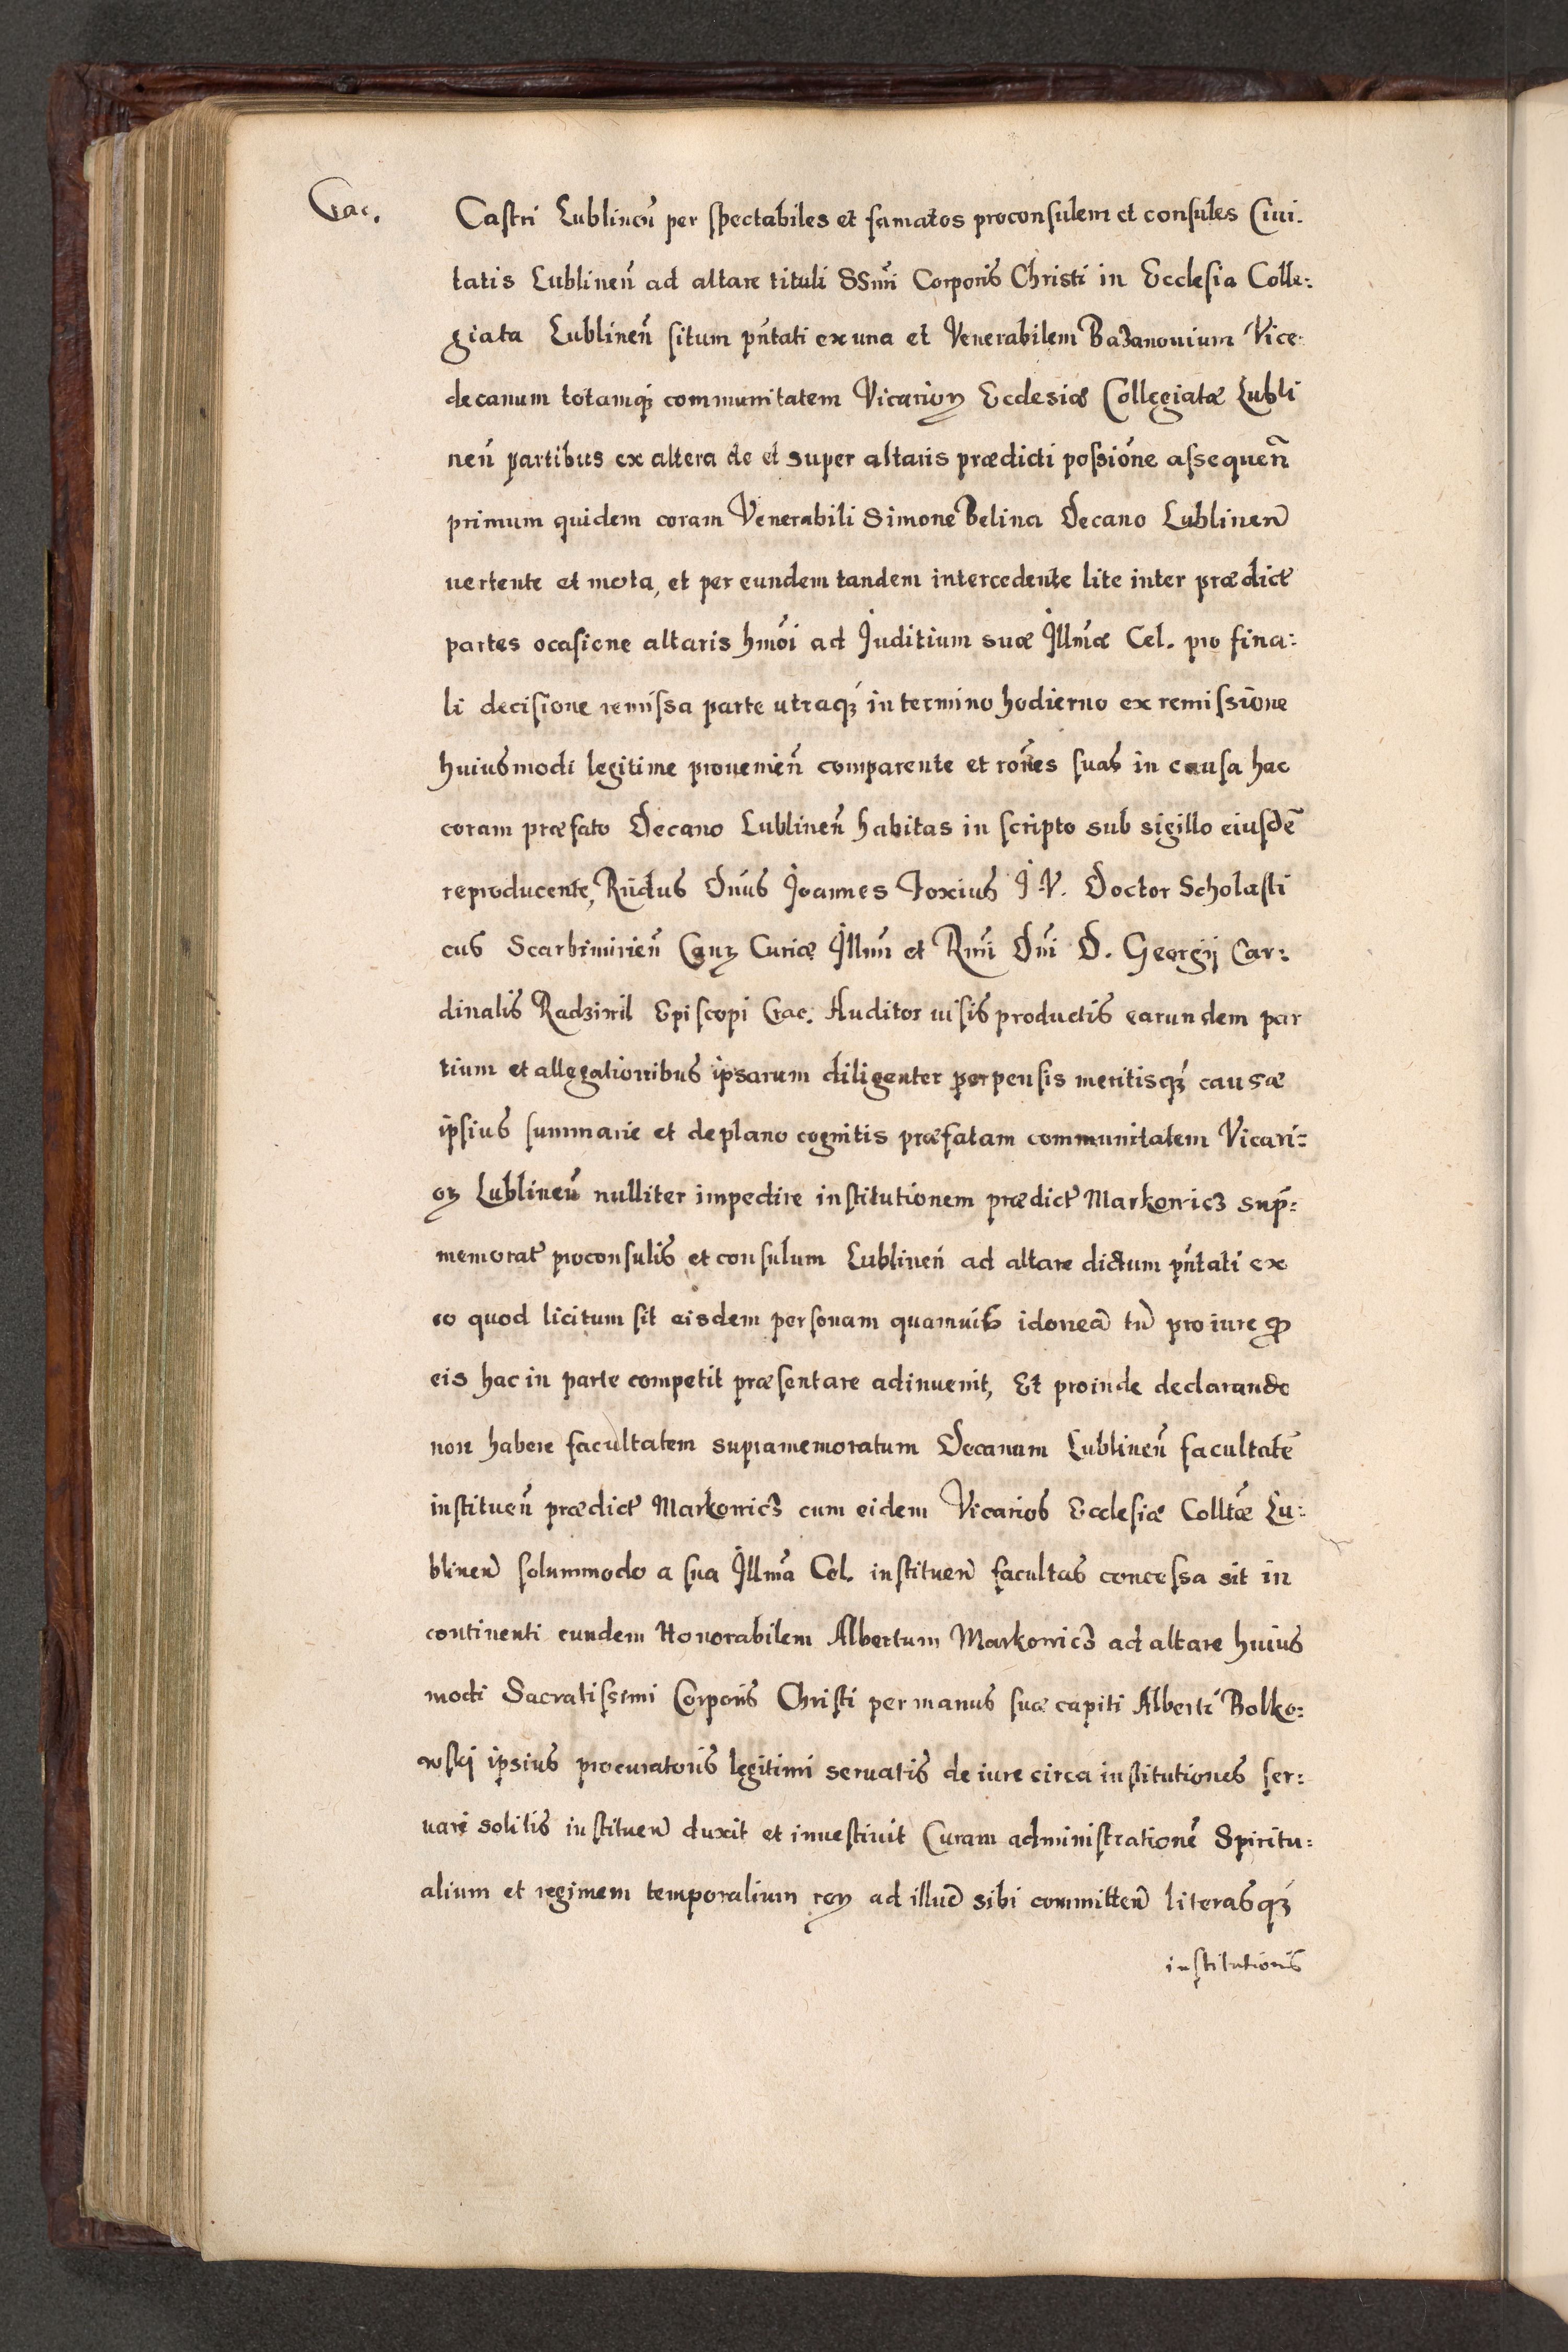 Crac.
Castri Lublineñ per spectabiles et famatos proconsulem et consules Ciui.
tatis Lublineñ ad altare tituli SSmi Corporis Christi in Ecclesia Colle:
giata Lublineñ situm pn̄tati ex una et Venerabilem Bazanouium Vice:
decanum totamqꝫ communitatem Vicarioꝝ Ecclesiæ Collegiatæ Lubli
neñ partibus ex altera de et super altaris prædicti possiōne assequeñ
primum quidem coram Venerabili Simone Belina Decano Lublineñ
uertente et mota, et per eundem tandem intercedente lite inter prædict
partes ocasione altaris hmōi ad Juditium suæ Jllmæ Cel. pro fina:
li decisione remissa parte utraqꝫ in termino hodierno ex remissione
huiusmodi legitime prouenieñ comparente et rōnes suas in causa hac
coram præfato Decano Lublineñ habitas in scripto sub sigillo eiusdē
reproducente, Rn̄dus Dn̄us Joannes Foxius J. V. Doctor Scholasti
cus Scarbimirieñ Cauꝝ Curiæ Jllmi et Rmi Dn̄i D. Georgij Car:
dinalis Radziwil Episcopi Crac. Auditor uisis productis earundem par
tium et allegationibus ipsarum diligenter perpensis meritisqꝫ causæ
ipsius summarie et de plano cognitis præfatam communitatem Vicari:
oꝝ Lublineñ nulliter impedire institutionem prædict Markowicz sup:
memorat proconsulis et consulum Lublineñ ad altare dictum pn̄tati ex
eo quod licitum sit eisdem personam quamuis idoneā tn̄ pro iure qđ
eis hac in parte competit præsentare adinuenit, Et proinde declarando
non habere facultatem supramemoratum Decanum Lublineñ facultatē
instituеñ prædict Markowicz cum eidem Vicarios Ecclesiæ Colltæ Lu:
blineñ solummodo a sua Jllma Cel. instituеñ facultas concessa sit in
continenti eundem Honorabilem Albertum Markowicz ad altare huius
modi Sacratissimi Corporis Christi per manus suæ capiti Alberti Bolko:
wskj ipsius procuratoris legitimi seruatis de iure circa institutiones ser:
uari solitis instituеñ duxit et inuestiuit Curam administrationē Spiritu:
alium et regimem temporalium reꝝ ad illud sibi committeñ literasqꝫ
institutionis